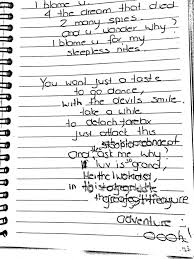 I blame u
4 the dream that died
2 many spies.
and u wonder why?
I blame u for my
sleepless nites.
You want just a taste
to go dance,
with the devils smile
take a while
to detach
just attach this
And ask me why?
If luv is so grand,
in to
treasure
adventure.
oooh!